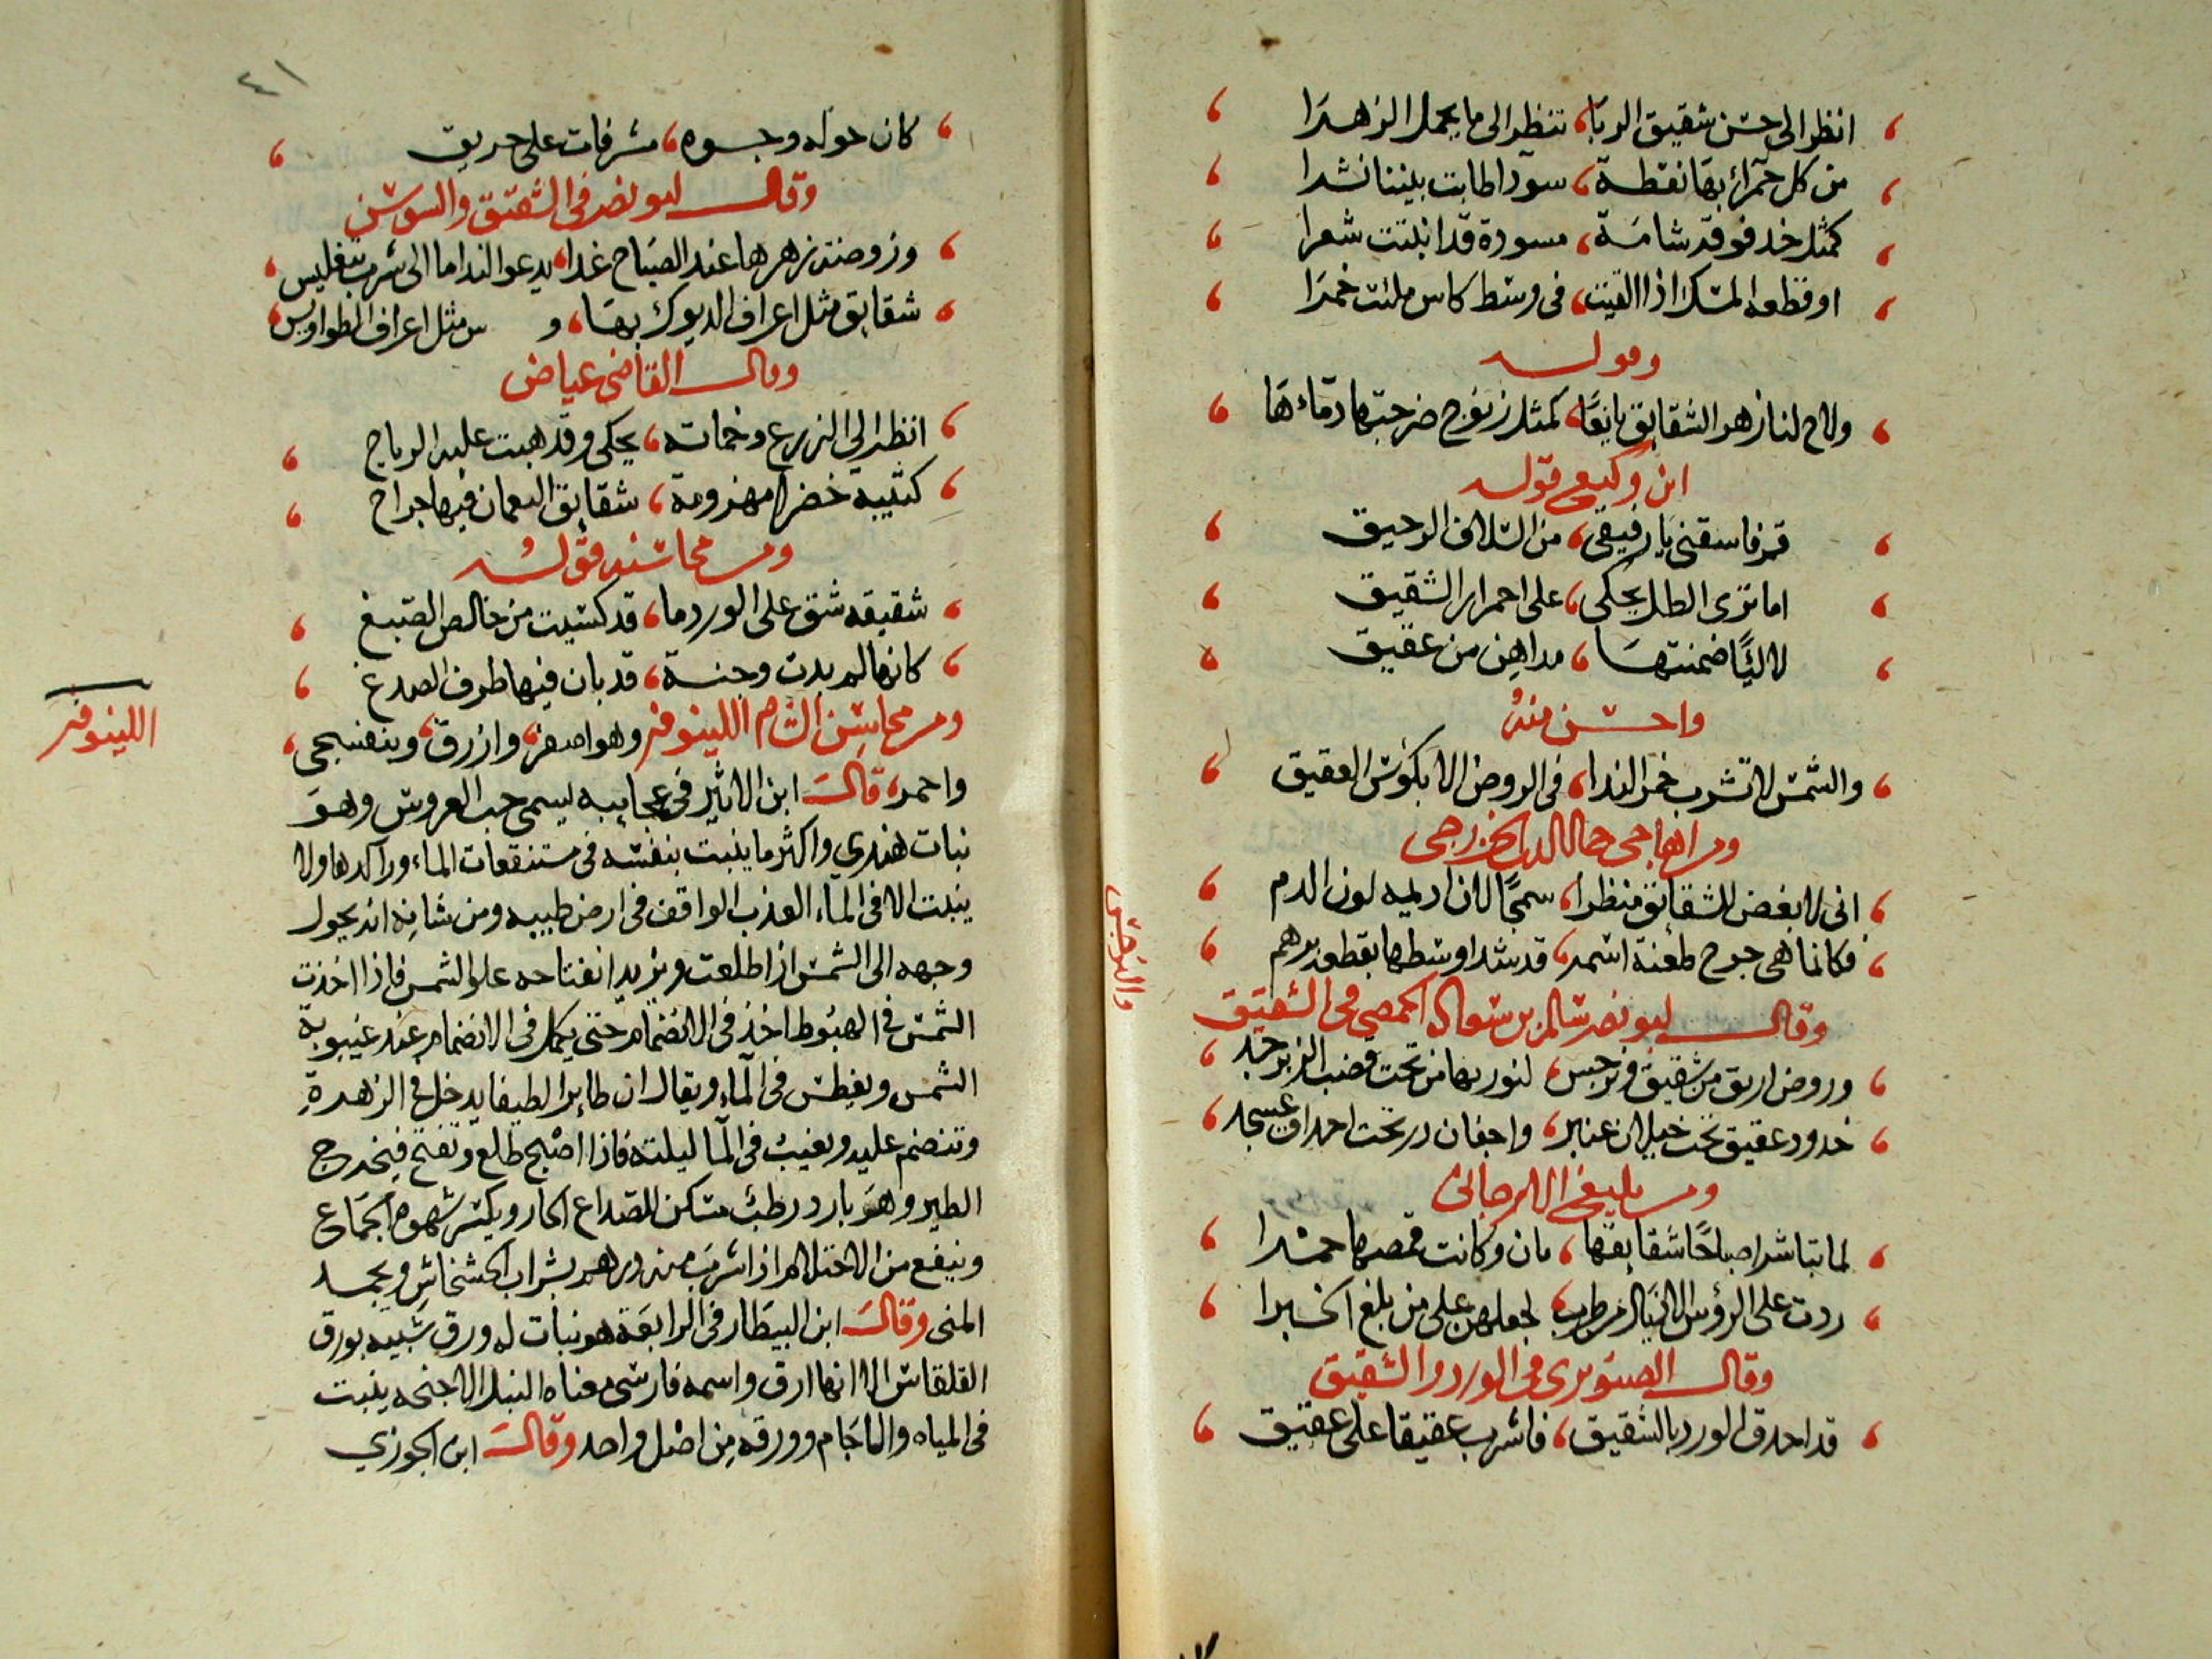 انظر الى حسن شقيق الربا، تنظر الى ما يحمل الزهرا
من كل حمراء بها نقطة، سودا طابت بيننا نشرا
كمثل خد فوقه شامة، مسودة قد انبتت شعرا
او قطعه المسك اذا القيت، في وسط كاس ملئت خمرا
وقوله
ولاح لنا زهر الشقايق يانعًا، كمثل زنوج ضرجتها دماءها
ابن وكيع قوله
قم فاسقني يا رفيقي، من السلاف الرحيق
اما ترى الطل يحكي، على احمرار الشقيق
لاليًا ضمنتها، مداهن من عقيق
واحسن منه
والشمس لا تشرب خمر الندا، في الروض الا بكؤس العقيق
الخزرجي
اني لابغض للشقائق منظرا، سمجًا لان اديمه لون الدم
فكانما هي جرح طعنة اسمر، قد شد اوسطها بقطعة درهم
وقال ابو نصر سالم بن الحمصي في الشقيق
وروض اريق من شقيق ونرجس، لنوريها من تحت قضب الزبرجد
خدود عقيق تحت خيلان عنبر، واجفان در تحت احداق عسجد
لما تباشر صباحًا شقايقها، بان وكانت قمصها حمرا
ردت على الرؤس الاذيال من طرب، لجعلهن على من بلغ الخبرا
وقال الصنوبري في الورد والشقيق
قد احدق الورد بالشقيق، فاشرب عقيقا على عقيق
والنرجس
٤١
كان حوله وجوه، مشرفات على حريق
وقال ابو نصر في الشقيق والسوسن
وروضة زهرها عند الصباح غدا، يدعو النداما الى شرب بتغليس
شقايق مثل اعراف الديوك بها، و سن مثل اعراف الطواويس
وقال القاضي عياض
انظر الى الزرع وخاماته، يحكي وقد هبت عليه الرياح
كتيبه خضرا مهزومة، شقايق النعمان فيها جراح
ومن محاسنه قوله
شقيقه شق على الورد ما، قد كسيت من خالص الصبغ
كانها لم بدت وجنة، قد بان فيها طرف الصدغ
ومن محاسن الشام اللينوفر وهو اصفر، وازرق، وبنفسجى،
واحمر، قال ابن الاثير في عجايبه يسمى حب العروس وهو
نبات هندي واكثر ما ينبت بنفسه في مستنقعات الماء وراكدها ولا
ينبت الا في الماء العذب الواقف في ارض طيبه ومن شانه انه يحول
وجهه الى الشمس اذا طلعت ويزيد انفتاحه علو الشمس فاذا اخذت
الشمس في الهبوط اخذ في الانضمام حتى يكمل في الانضمام عند غيبوبة
الشمس ويغطس في الماء ويقال ان طايرا لطيفا يدخل في الزهرة
وتنضم عليه ويغيب في الما ليلته فاذا اصبح طلع وتفتح فيخرج
الطير وهو بارد رطب مسكن للصداع الحار ويكسر شهوة الجماع
وينفع من الاحتلام اذا شرب منه درهم بشراب الخشخاش ويجمد
المنى وقال ابن البيطار في الرابعة هو نبات له ورق شبيه بورق
القلقاس الا انها ارق واسمه فارسي معناه النيل الاجنحه ينبت
في المياه والاجام وورقه من اصل واحد وقال ابن الجوزي
اللينوفر